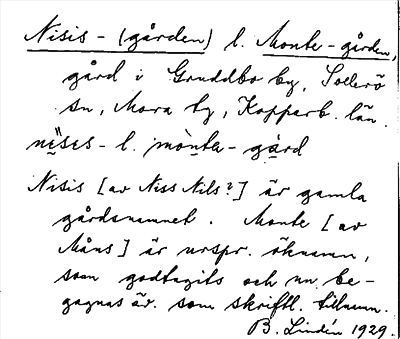 Nisis - (gården) l. Monte - gården,
gård i Gruddbo by, Sollerö
sn, Mora tg, Kopparb. län.
nisis - l. mònta - gård
Nisis [av Niss Nils?] är gamla
gårdsnamnet. Monte [av
Måns] är urspr. öknamn,
som godtagits och nu be-
gagnas äv. som skriftl. tillnamn.
B. Lindén 1929.